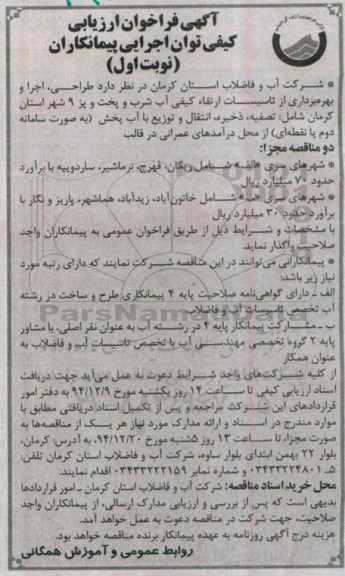 آگهی فراخوان ارزیابی
کیفی توان اجرایی پیمانکاران
(نوبت اول)
* شرکت آب و فاضلاب استان کرمان در نظر دارد طراحی، اجرا و
بهره‌برداری از تاسیسات ارتقاء کیفی آب شرب و پخت و پز ۹ شهر استان
کرمان شامل: تصفیه، ذخیره، انتقال و توزیع با آب پخش (به صورت سامانه
دوم یا نقطه‌ای) از محل درآمدهای عمرانی در قالب
دو مناقصه مجزا:
* شهرهای سری «الف» شامل ریگان، فهرج، نرماشیر، ساردوییه با برآورد
حدود ۷۰ میلیارد ریال
* شهرهای سری «ب» شامل خاتون‌آباد، زیدآباد، هماشهر، پاریز و نگار با
برآورد حدود ۳۰ میلیارد ریال
با مشخصات و شرایط ذیل از طریق فراخوان عمومی به پیمانکاران واجد
صلاحیت واگذار نماید.
* پیمانکارانی می‌توانند در این مناقصه شرکت نمایند که دارای رتبه مورد
نیاز زیر باشد:
الف ـ دارای گواهی‌نامه صلاحیت پایه ۴ پیمانکاری طرح و ساخت در رشته
آب تخصص تاسیسات آب و فاضلاب
ب ـ مشارکت پیمانکار پایه ۴ در رشته آب به عنوان نفر اصلی، با مشاور
پایه ۲ گروه تخصصی مهندسی آب با تخصص تاسیسات آب و فاضلاب به
عنوان همکار
از کلیه شرکت‌های واجد شرایط دعوت به عمل می‌آید جهت دریافت
اسناد ارزیابی کیفی تا ساعت ۱۴ روز یکشنبه مورخ ۹۴/۱۲/۹ به دفتر امور
قراردادهای این شرکت مراجعه و پس از تکمیل اسناد دریافتی مطابق با
موارد مندرج در اسناد و ارائه مدارک مورد نیاز هر یک از مناقصه‌ها به
صورت مجزا، تا ساعت ۱۳ روز ۵شنبه مورخ ۹۴/۱۲/۲۰، به آدرس: کرمان،
بلوار ۲۲ بهمن ابتدای بلوار ساوه، شرکت آب و فاضلاب استان کرمان تلفن:
۵ـ۰۳۴۳۳۲۲۴۸۰۱ و شماره نمابر ۰۳۴۳۳۲۲۲۱۵۹ اقدام نمایند.
محل خرید اسناد مناقصه: شرکت آب و فاضلاب استان کرمان ـ امور قراردادها
بدیهی است که پس از بررسی و ارزیابی مدارک ارسالی، از پیمانکاران واجد
صلاحیت، جهت شرکت در مناقصه دعوت به عمل خواهد آمد.
هزینه درج آگهی روزنامه به عهده پیمانکار برنده مناقصه خواهد بود.
روابط عمومی و آموزش همگانی